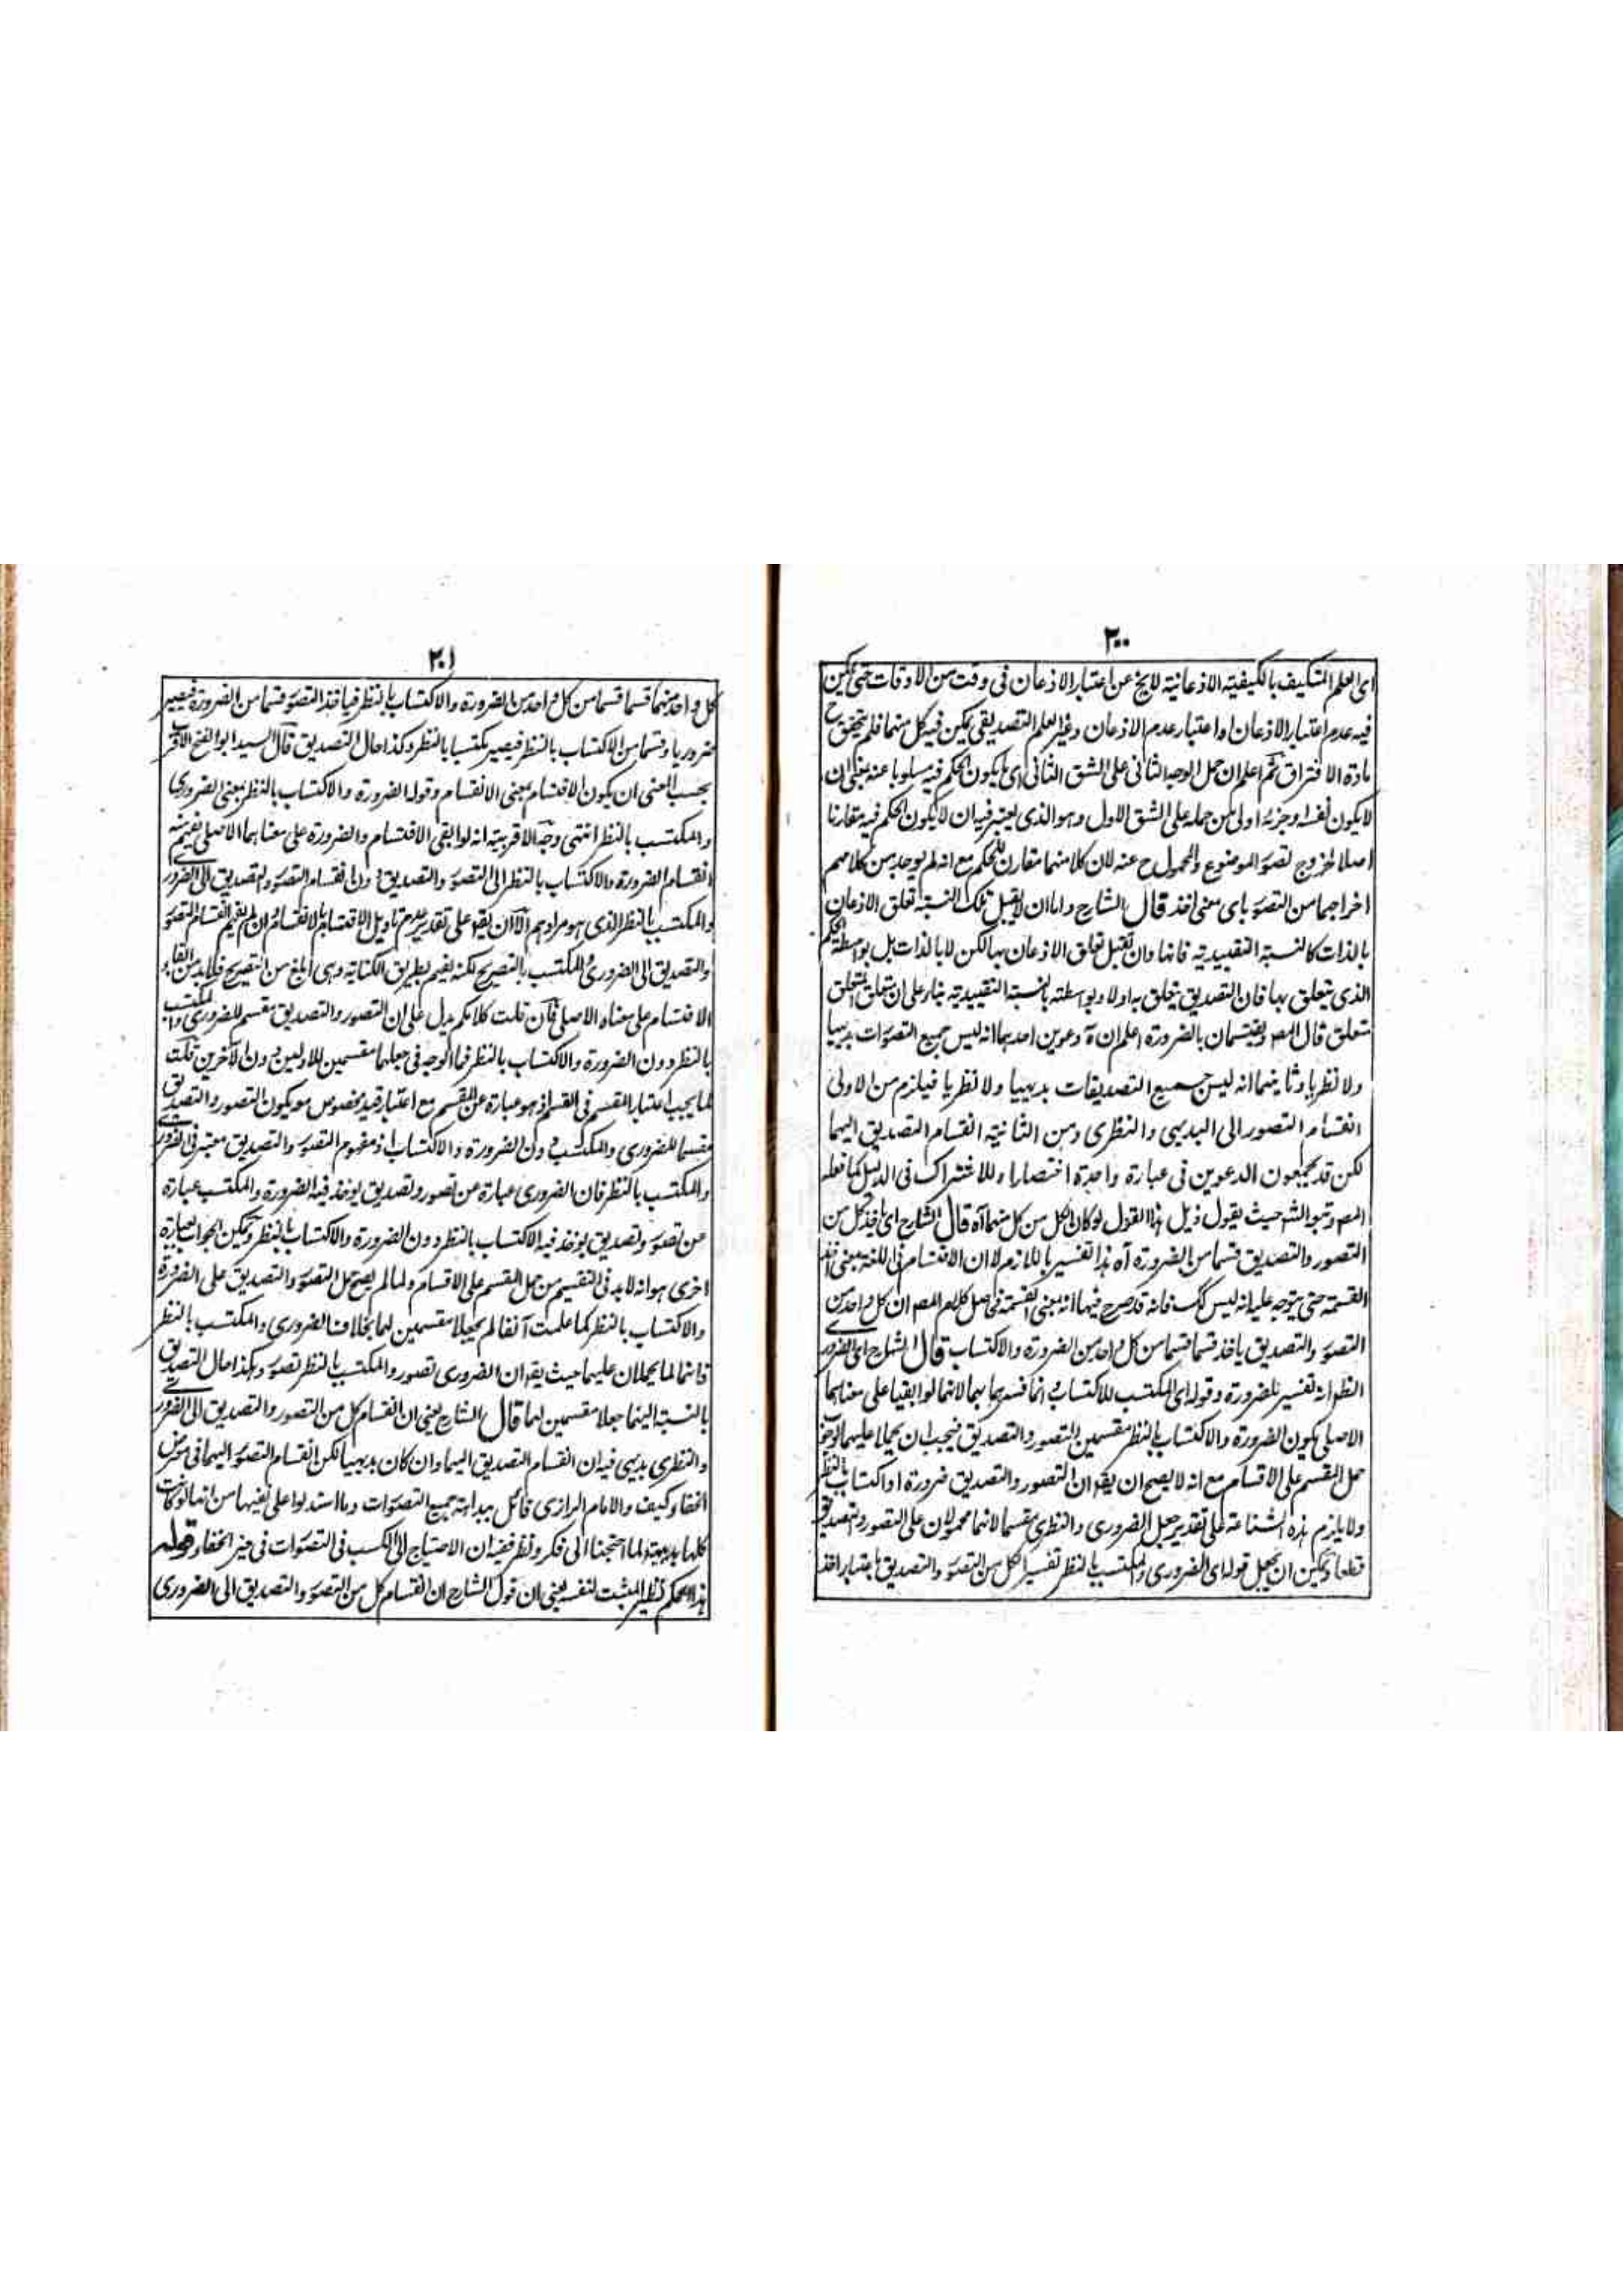 ٢٠٠
اى العلم المتكيف بالكيفية الاذعانية لايخ عن اعتبار الاذعان فى وقت من الاوقات حتى يمكن
فيه عدم اعتبار الاذعان او اعتبار عدم الاذعان وغير العلم التصديقى يمكن فيه كل منهما فلم يتحقق ح
مادة الافتراق ثم اعلم ان حمل الوجه الثانى على الشق الثانى اى ما يكون الحكم فيه مسلوبا عنه بمعنى ان
لا يكون نفسه وجزئه اولى من حمله على الشق الاول وهو الذى يعتبر فيه ان لا يكون الحكم فيه مقارنا
اصلا لخروج تصور الموضوع والمحمول ح عنه لان كلا منهما مقارن للحكم مع انه لم يوجد من كلامهم
اخراجهما من التصور باى معنى اخذ قال الشارح واما ان لا يقبل تلك النسبة تعلق الاذعان
بالذات كالنسبة التقييدية فانها وان تقبل تعلق الاذعان بها لكن لا بالذات بل بواسطة الحكم
الذى يتعلق بها فان التصديق يتعلق به اولا وبواسطته بالنسبة التقييدية بناء على ان متعلق المتعلق
متعلق قال المصـ ويقتسمان بالضرورة اعلم ان ه دعوين احدهما انه ليس جميع التصورات بديهيا
ولا نظريا وثانيهما انه ليس جميع التصديقات بديهيا ولا نظريا فيلزم من الاولى
انقسام التصور الى البديهى والنظرى ومن الثانية انقسام التصديق اليهما
لكن قد يجمعون الدعوين فى عبارة واحدة اختصارا وللاشتراك فى الدليل كما فعله
المصـ وتبعه الشـ حيث يقول ذيل هذا القول لو كان الكل من كل منهما آه قال الشارح اى ياخذ كل من
التصور والتصديق قسما من الضرورة آه هذا تفسير باللازم لا ان الاقتسام فى اللغة بمعنى اخذ
القسمة حتى يتوجه عليه انه ليس كك فانه قد صرح فيها انه بمعنى القسمة فحاصل كلام المصـ ان كل واحد من
التصور والتصديق ياخذ قسما قسما من كل واحد من الضرورة والاكتساب قال الشارح اى الضرورى
الظـ انه تفسير للضرورة وقوله اى المكتسب للاكتساب وانما فسرهما بهما لانهما لو ابقيا على معناهما
الاصلى يكون الضرورة والاكتساب بالنظر مقسمين للتصور والتصديق فيجب ان يحملا عليهما لوجوب
حمل المقسم على الاقسام مع انه لا يصح ان يقـ ان التصور والتصديق ضرورة او اكتساب بالنظر
ولا يلزم هذه الشناعة على تقدير جعل الضرورى والنظرى مقسما لانهما محمولان على التصور والتصديق
قطعا ويمكن ان يجعل قوله اى الضرورى والمكتسب بالنظر تفسيرا لكل من التصور والتصديق باعتبار اخذ
٢٠١
كل واحد منهما قسما قسما من كل واحد من الضرورة والاكتساب بالنظر فياخذ التصور قسما من الضرورة فيصير
ضروريا وقسما من الاكتساب بالنظر فيصير مكتسبا بالنظر وكذا حال التصديق قال السيد ابو الفتح الاقرب
بحسب المعنى ان يكون الاقتسام بمعنى الانقسام وقوله الضرورة والاكتساب بالنظر بمعنى الضرورى
والمكتسب بالنظر انتهى وجه الاقربية انه لو ابقى الاقتسام والضرورة على معناهما الاصلى يفهم منه
انقسام الضرورة والاكتساب بالنظر الى التصور والتصديق دون انقسام التصور والتصديق الى الضرورى
والمكتسب بالنظر الذى هو مرادهم الا ان يقـ على تقدير عدم تاويل الاقتسام بالانقسام وان لم يفهم انقسام التصور
والتصديق الى الضرورى والمكتسب بالتصريح لكنه يفهم بطريق الكناية وهى ابلغ من التصريح فلا بد من القاء
الاقتسام على معناه الاصلى فان قلت كلامكم يدل على ان التصور والتصديق مقسم للضرورى والمكتسب
بالنظر دون الضرورة والاكتساب بالنظر فما الوجه فى جعلهما مقسمين للاولين دون الآخرين قلت
لما يجب اعتبار المقسم فى القسم اذ هو عبارة عن المقسم مع اعتبار قيد مخصوص مو يكون التصور والتصديق
مقسما للضرورى والمكتسب دون الضرورة والاكتساب اذ مفهوم التصور والتصديق معتبر فى الضرورى
والمكتسب بالنظر فان الضرورى عبارة عن تصور وتصديق يوخذ فيه الضرورة والمكتسب عبارة
عن تصور وتصديق يوخذ فيه الاكتساب بالنظر دون الضرورة والاكتساب بالنظر ويمكن الجواب بعبارة
اخرى هو انه لا بد فى التقسيم من حمل المقسم على الاقسام ولما لم يصح حمل التصور والتصديق على الضرورة
والاكتساب بالنظر كما علمت آنفا لم يجعلا مقسمين لهما بخلاف الضرورى والمكتسب بالنظر
فانهما لما يحملان عليهما حيث يقـ ان الضرورى تصور والمكتسب بالنظر تصور وهكذا حال التصديق
بالنسبة اليهما جعلا مقسمين لهما قال الشارح يعنى ان انقسام كل من التصور والتصديق الى الضرورى
والنظرى بديهى فيه ان انقسام التصديق اليهما وان كان بديهيا لكن انقسام التصور اليهما فى معرض
الخفاء كيف والامام الرازى قائل ببداهة جميع التصورات وما استدلوا على نفيها من انها لو كانت
كلها بديهية لما احتجنا الى فكر ونظر ففيه ان الاحتياج الى الكسب فى التصورات فى حيز الخفاء قوله
هذا الحكم نظير المثبت لنفسه يعنى ان قول الشارح ان انقسام كل من التصور والتصديق الى الضرورى